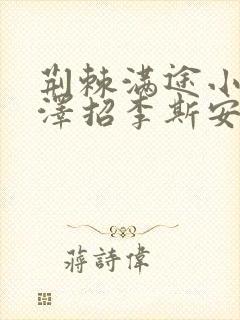 荆棘满途小
澤招李斯安
蔣詩偉